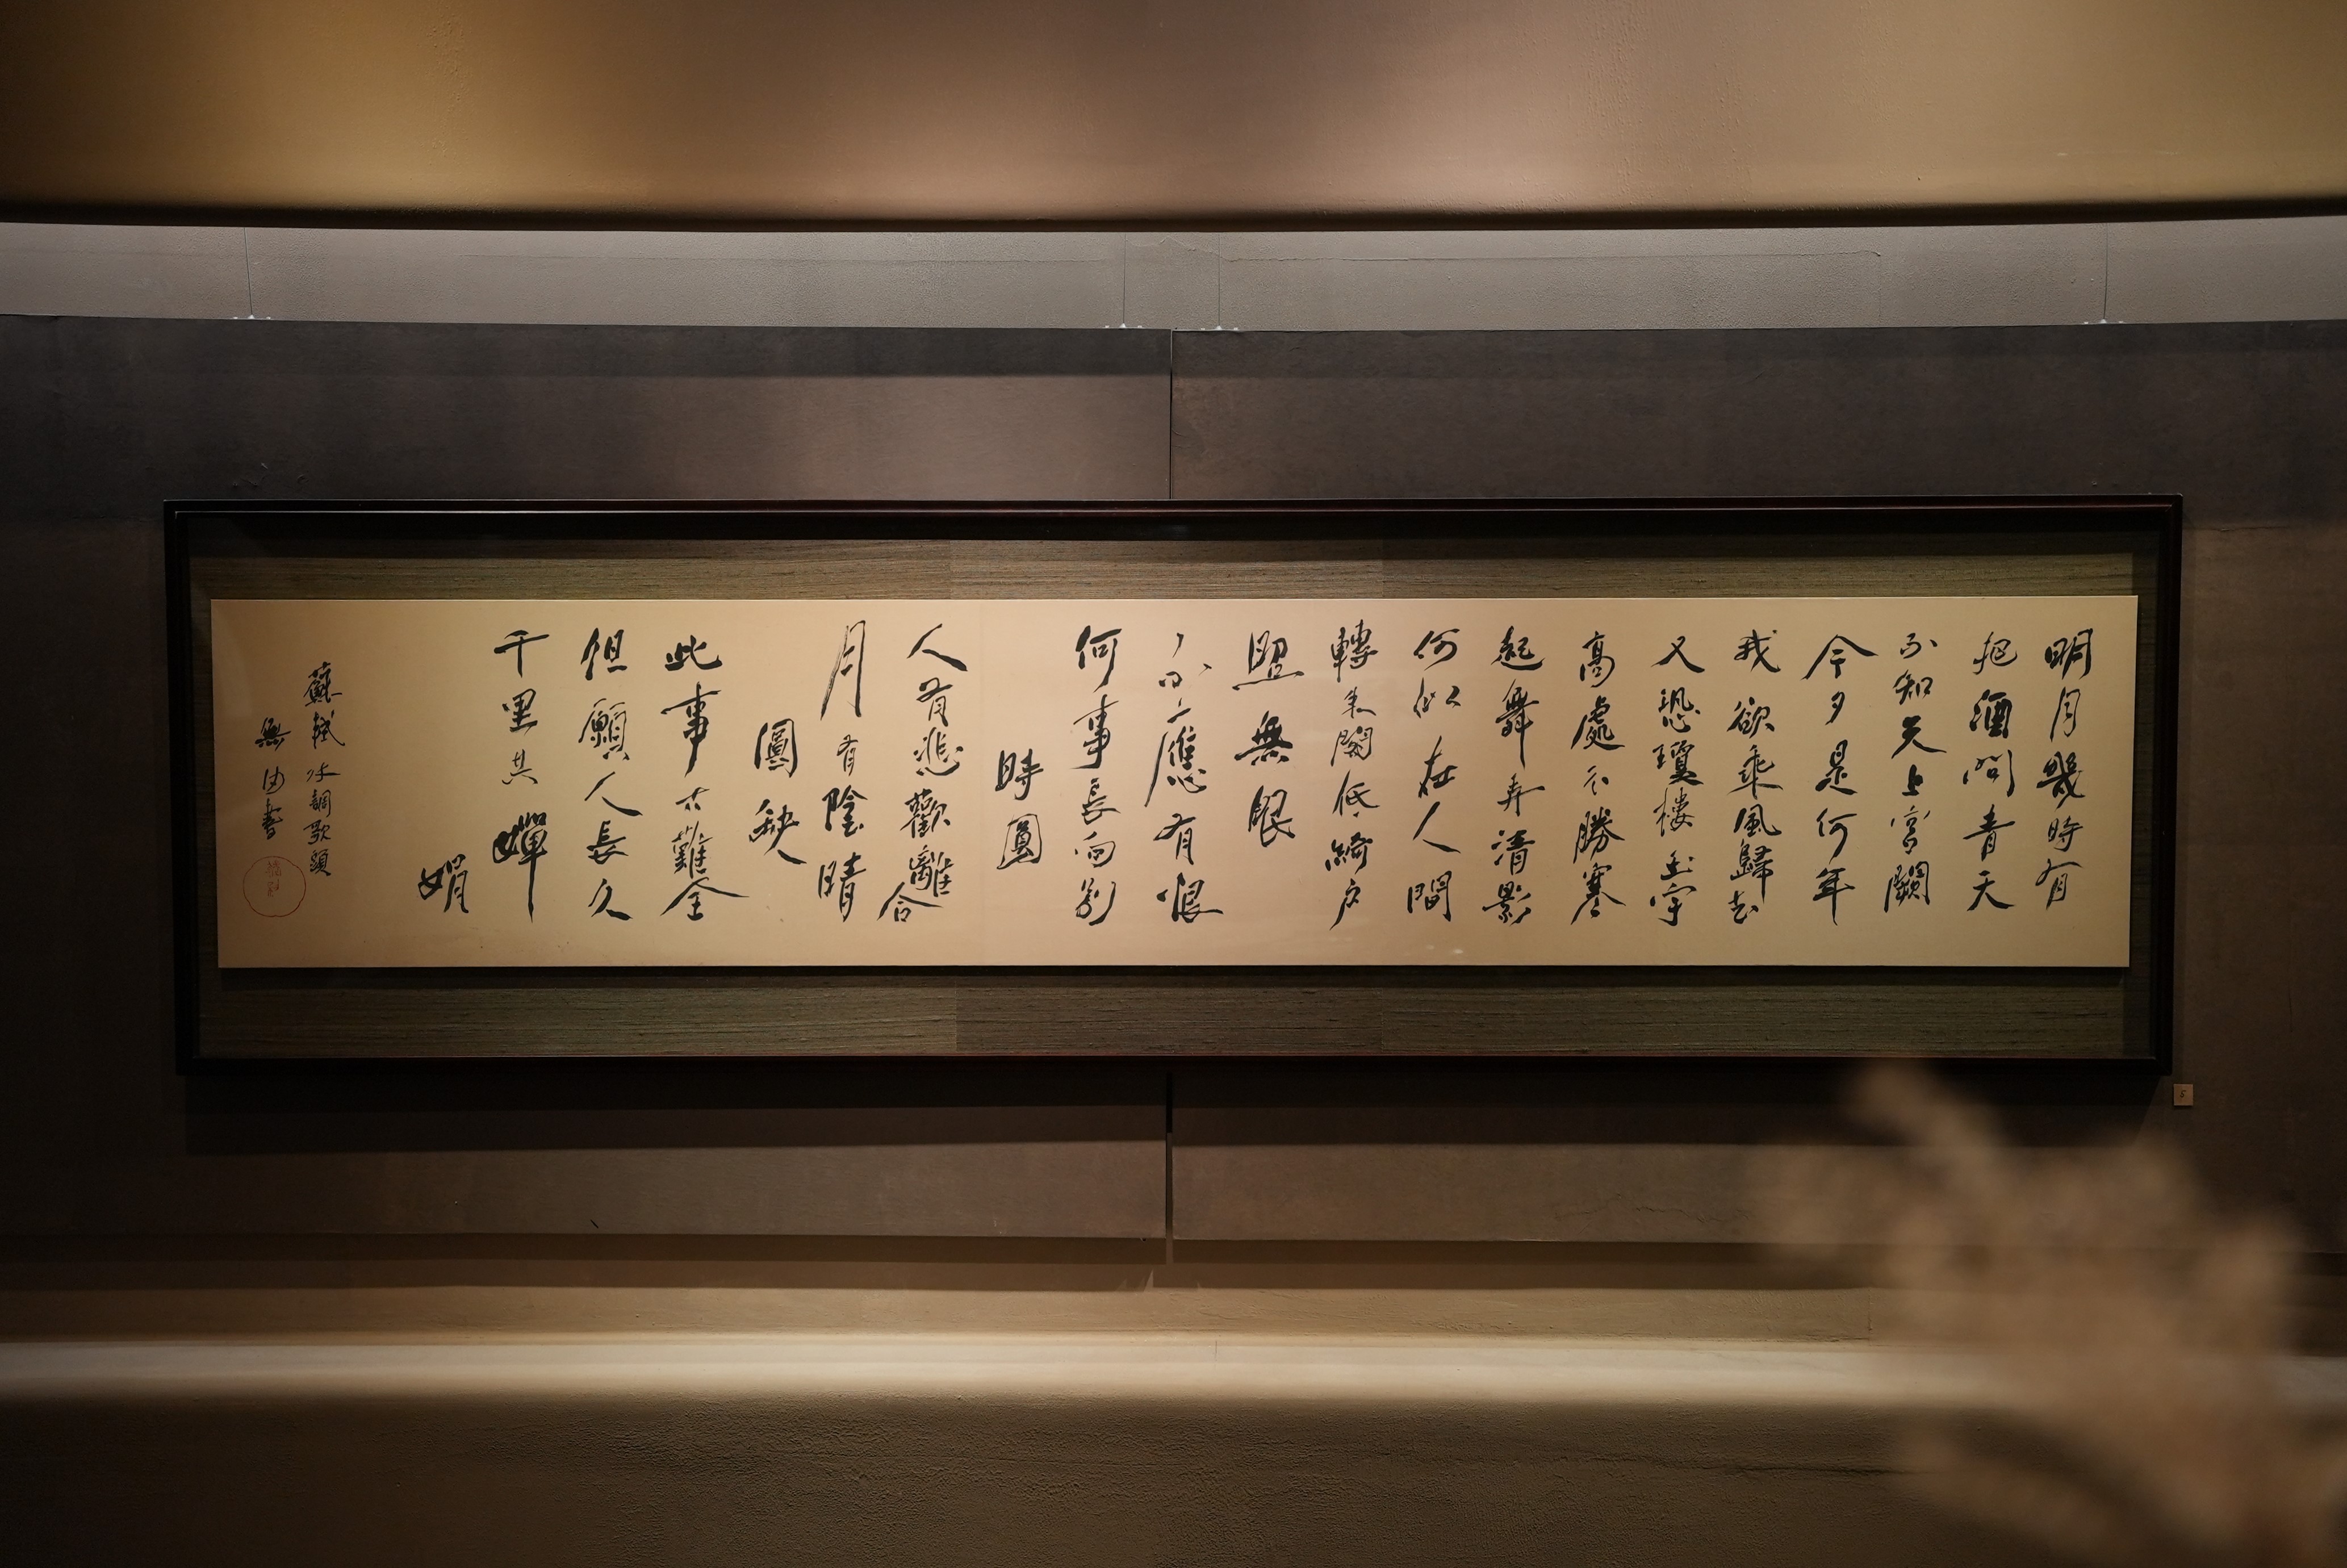 明月幾時有
把酒問青天
不知天上宮闕
今夕是何年
我欲乘風歸去
又恐瓊樓玉宇
高處不勝寒
起舞弄清影
何似在人間
轉朱閣低綺戶
照無眠
不應有恨
何事長向別
時圓
人有悲歡離合
月有陰晴
圓缺
此事古難全
但願人長久
千里共嬋
娟
蘇軾水調歌頭
無由書
5